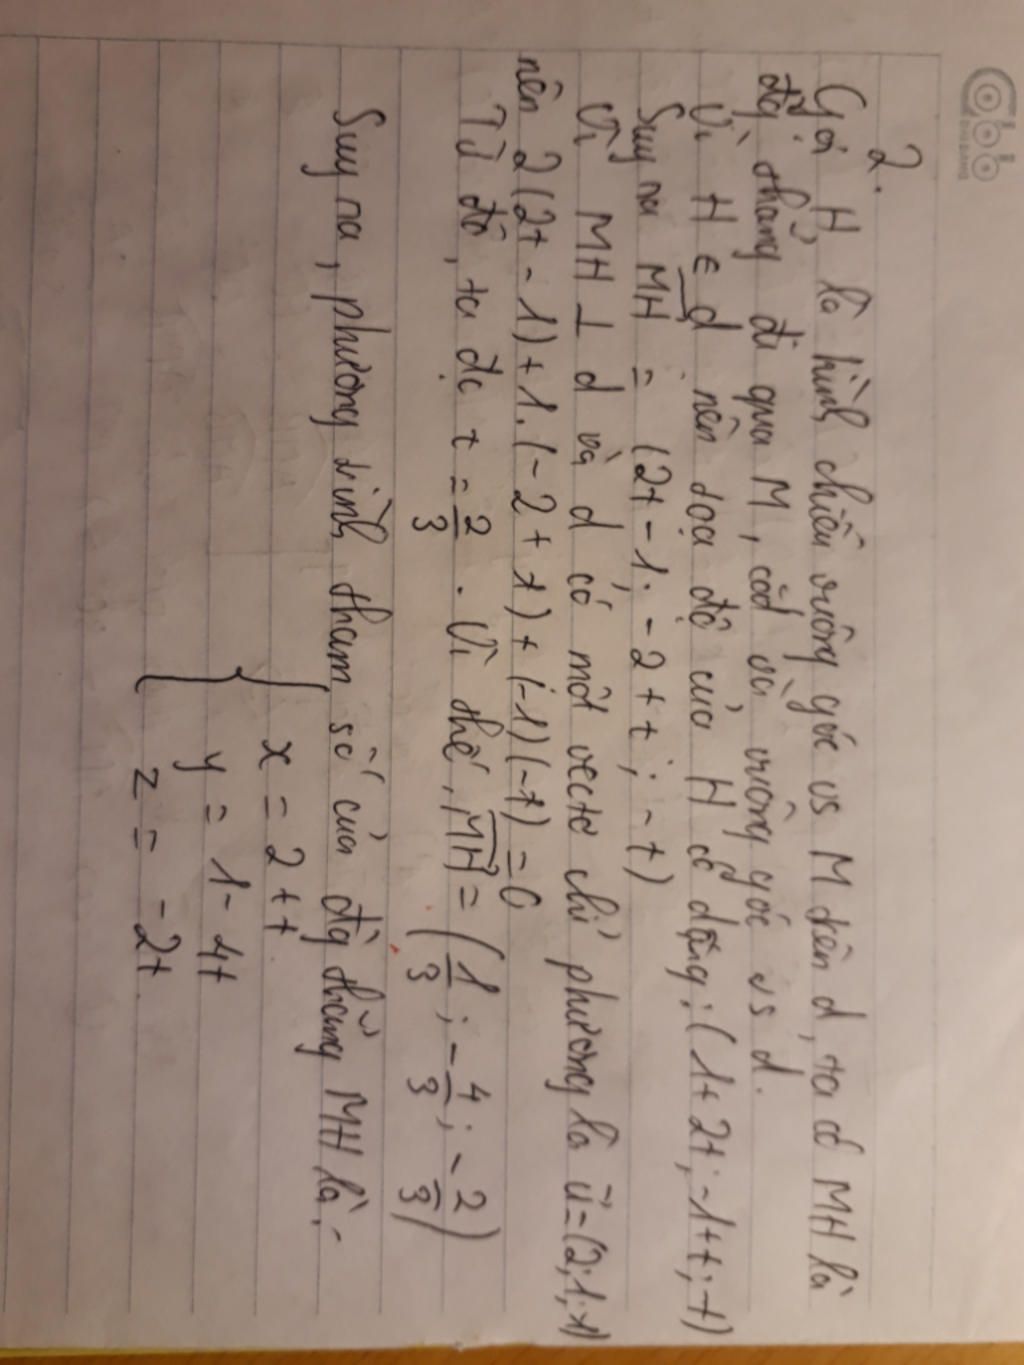 2.
Gọi H là hình chiếu vuông góc vs M trên d, ta có MH là
đg thẳng đi qua M, cắt và vuông góc vs d.
Vì H ∈ d nên tọa độ của H có dạng: (1+2t; -1+t; -t)
Suy ra MH = (2t - 1; - 2 + t; - t)
Vì MH ⊥ d và d có một vectơ chỉ phương là u = (2; 1; -1)
nên 2(2t - 1) + 1.(- 2 + t) + (-1)(-t) = 0
Từ đó, ta đc t = 2/3. Vì thế, MH = (1/3; - 4/3; - 2/3)
Suy ra, phương trình tham số của đg thẳng MH là:
{ x = 2 + t
y = 1 - 4t
z = - 2t